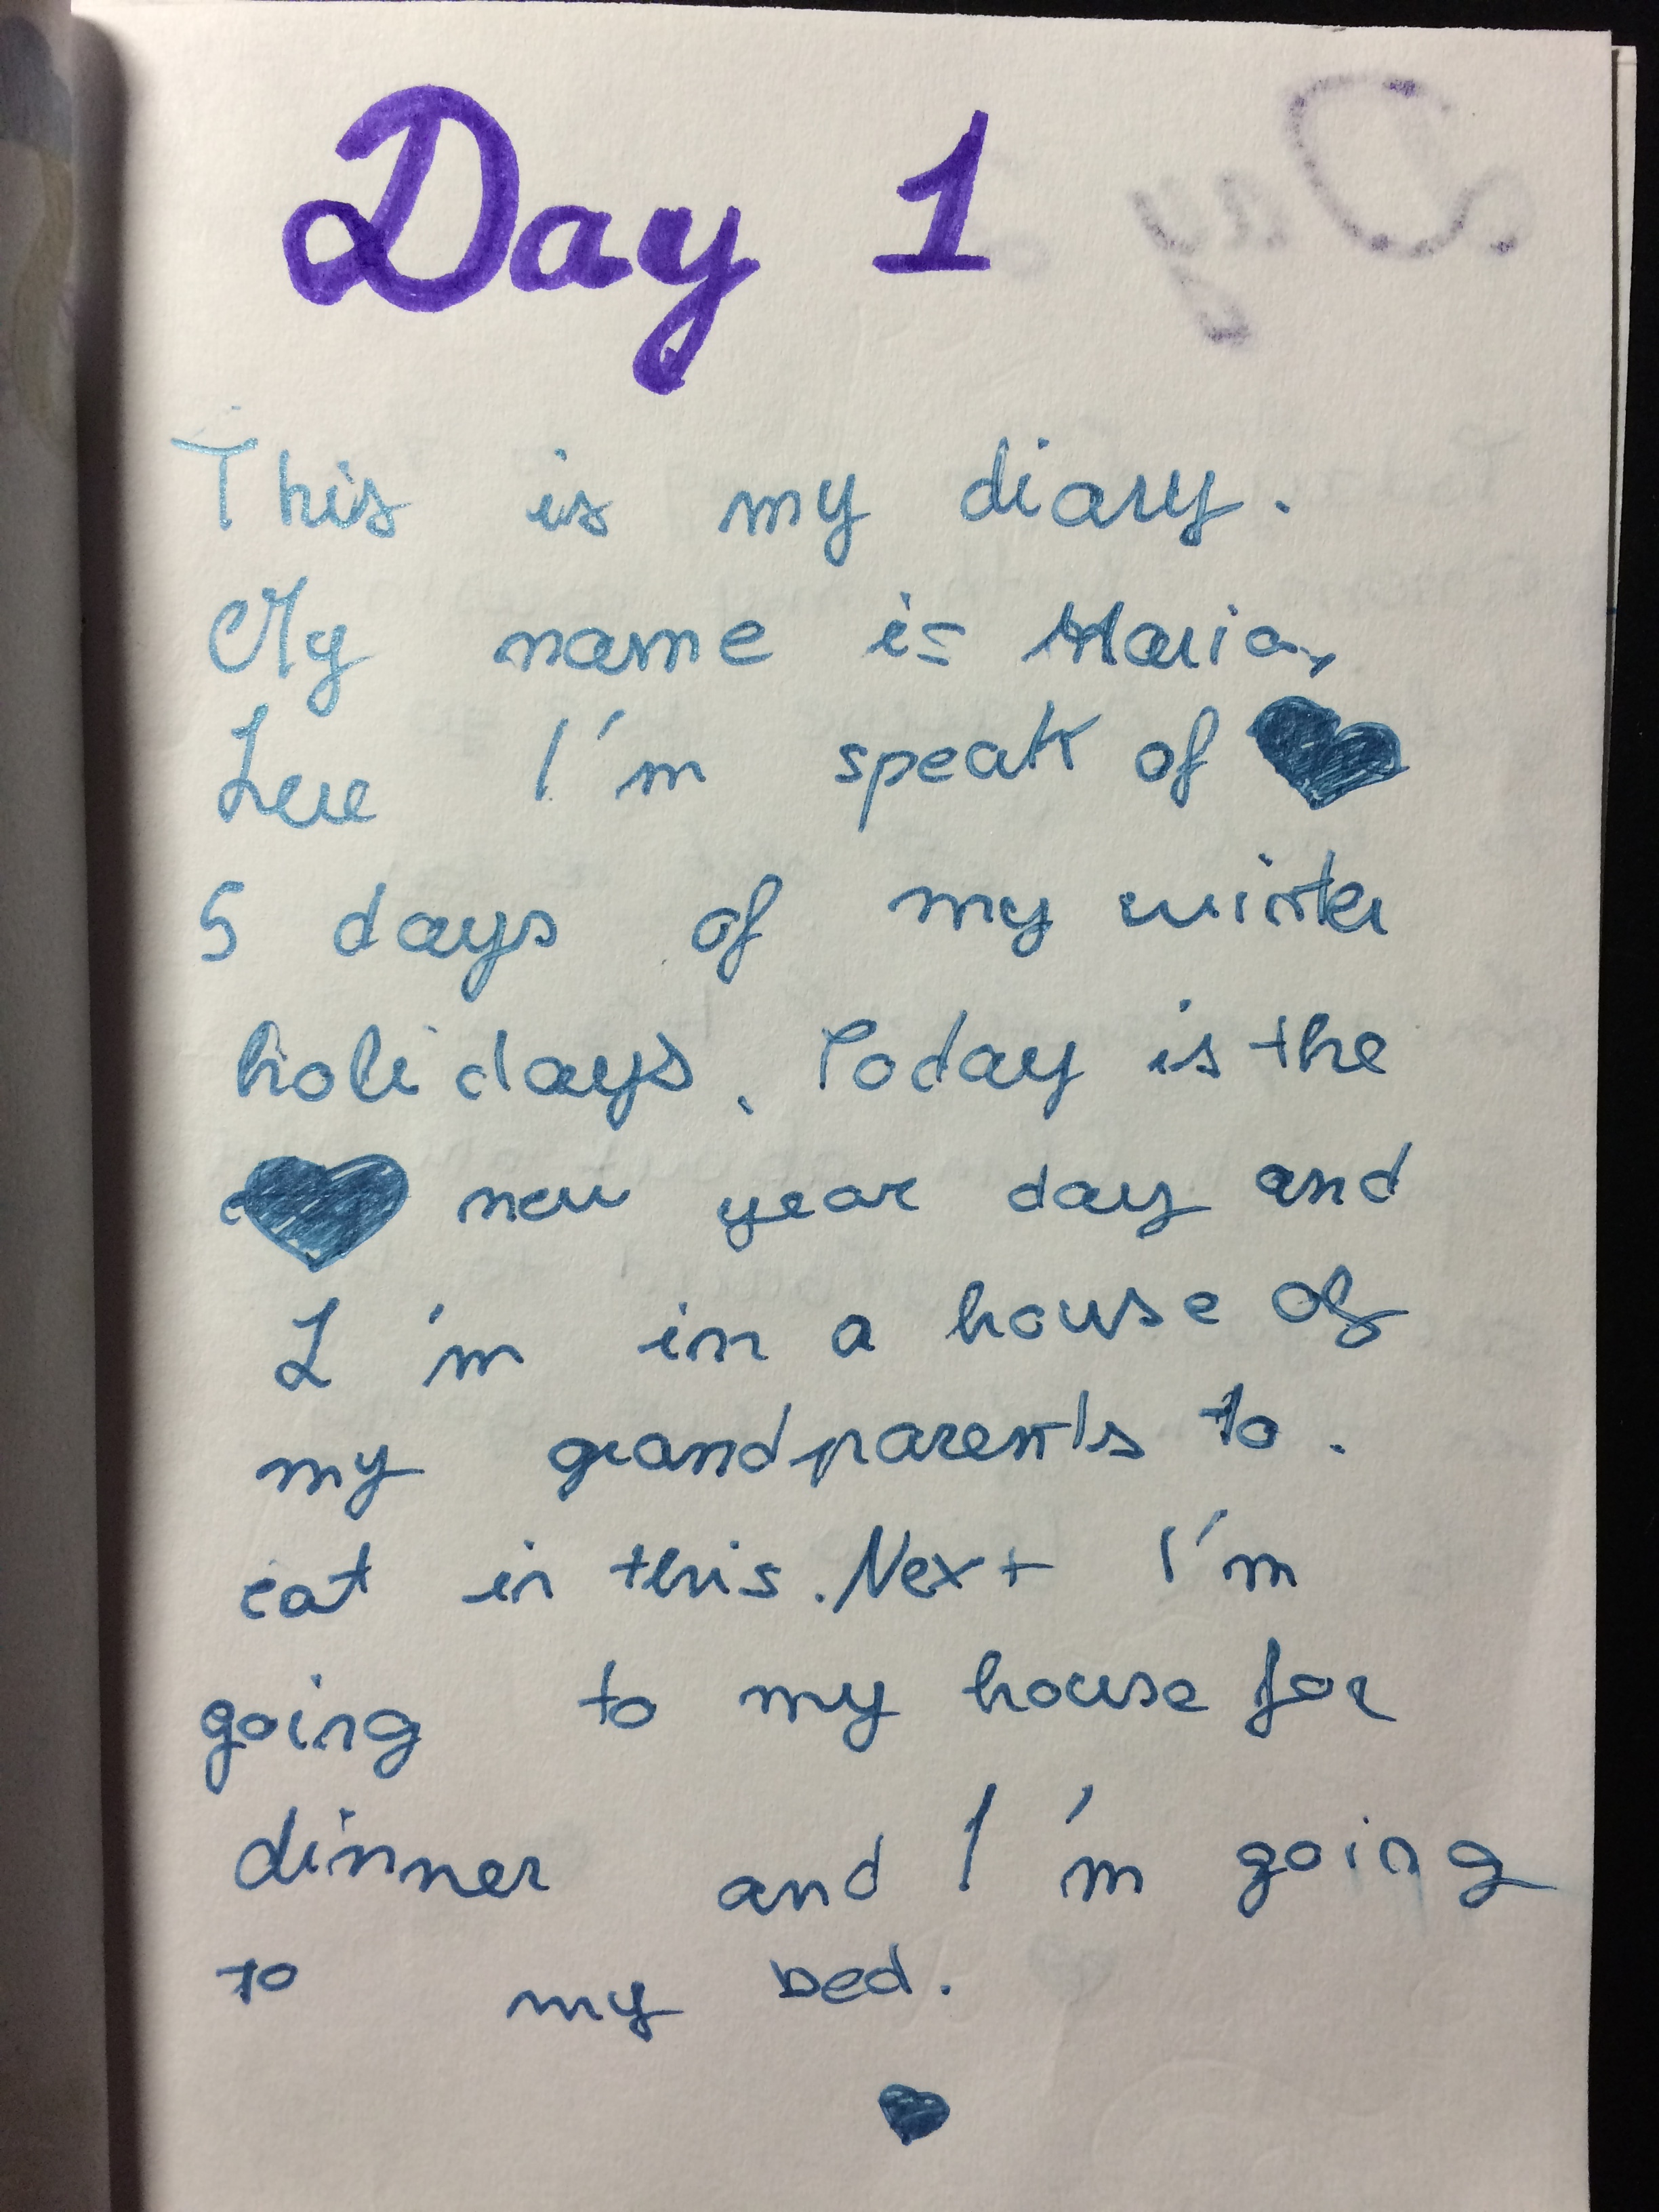 Day 1
This is my diary.
My name is Maria,
here I'm speak of
5 days of my winter
holidays. Today is the
new year day and
I'm in a house of
my grandparents to.
eat in this. Next I'm
going to my house for
dinner and I'm going
to my bed.